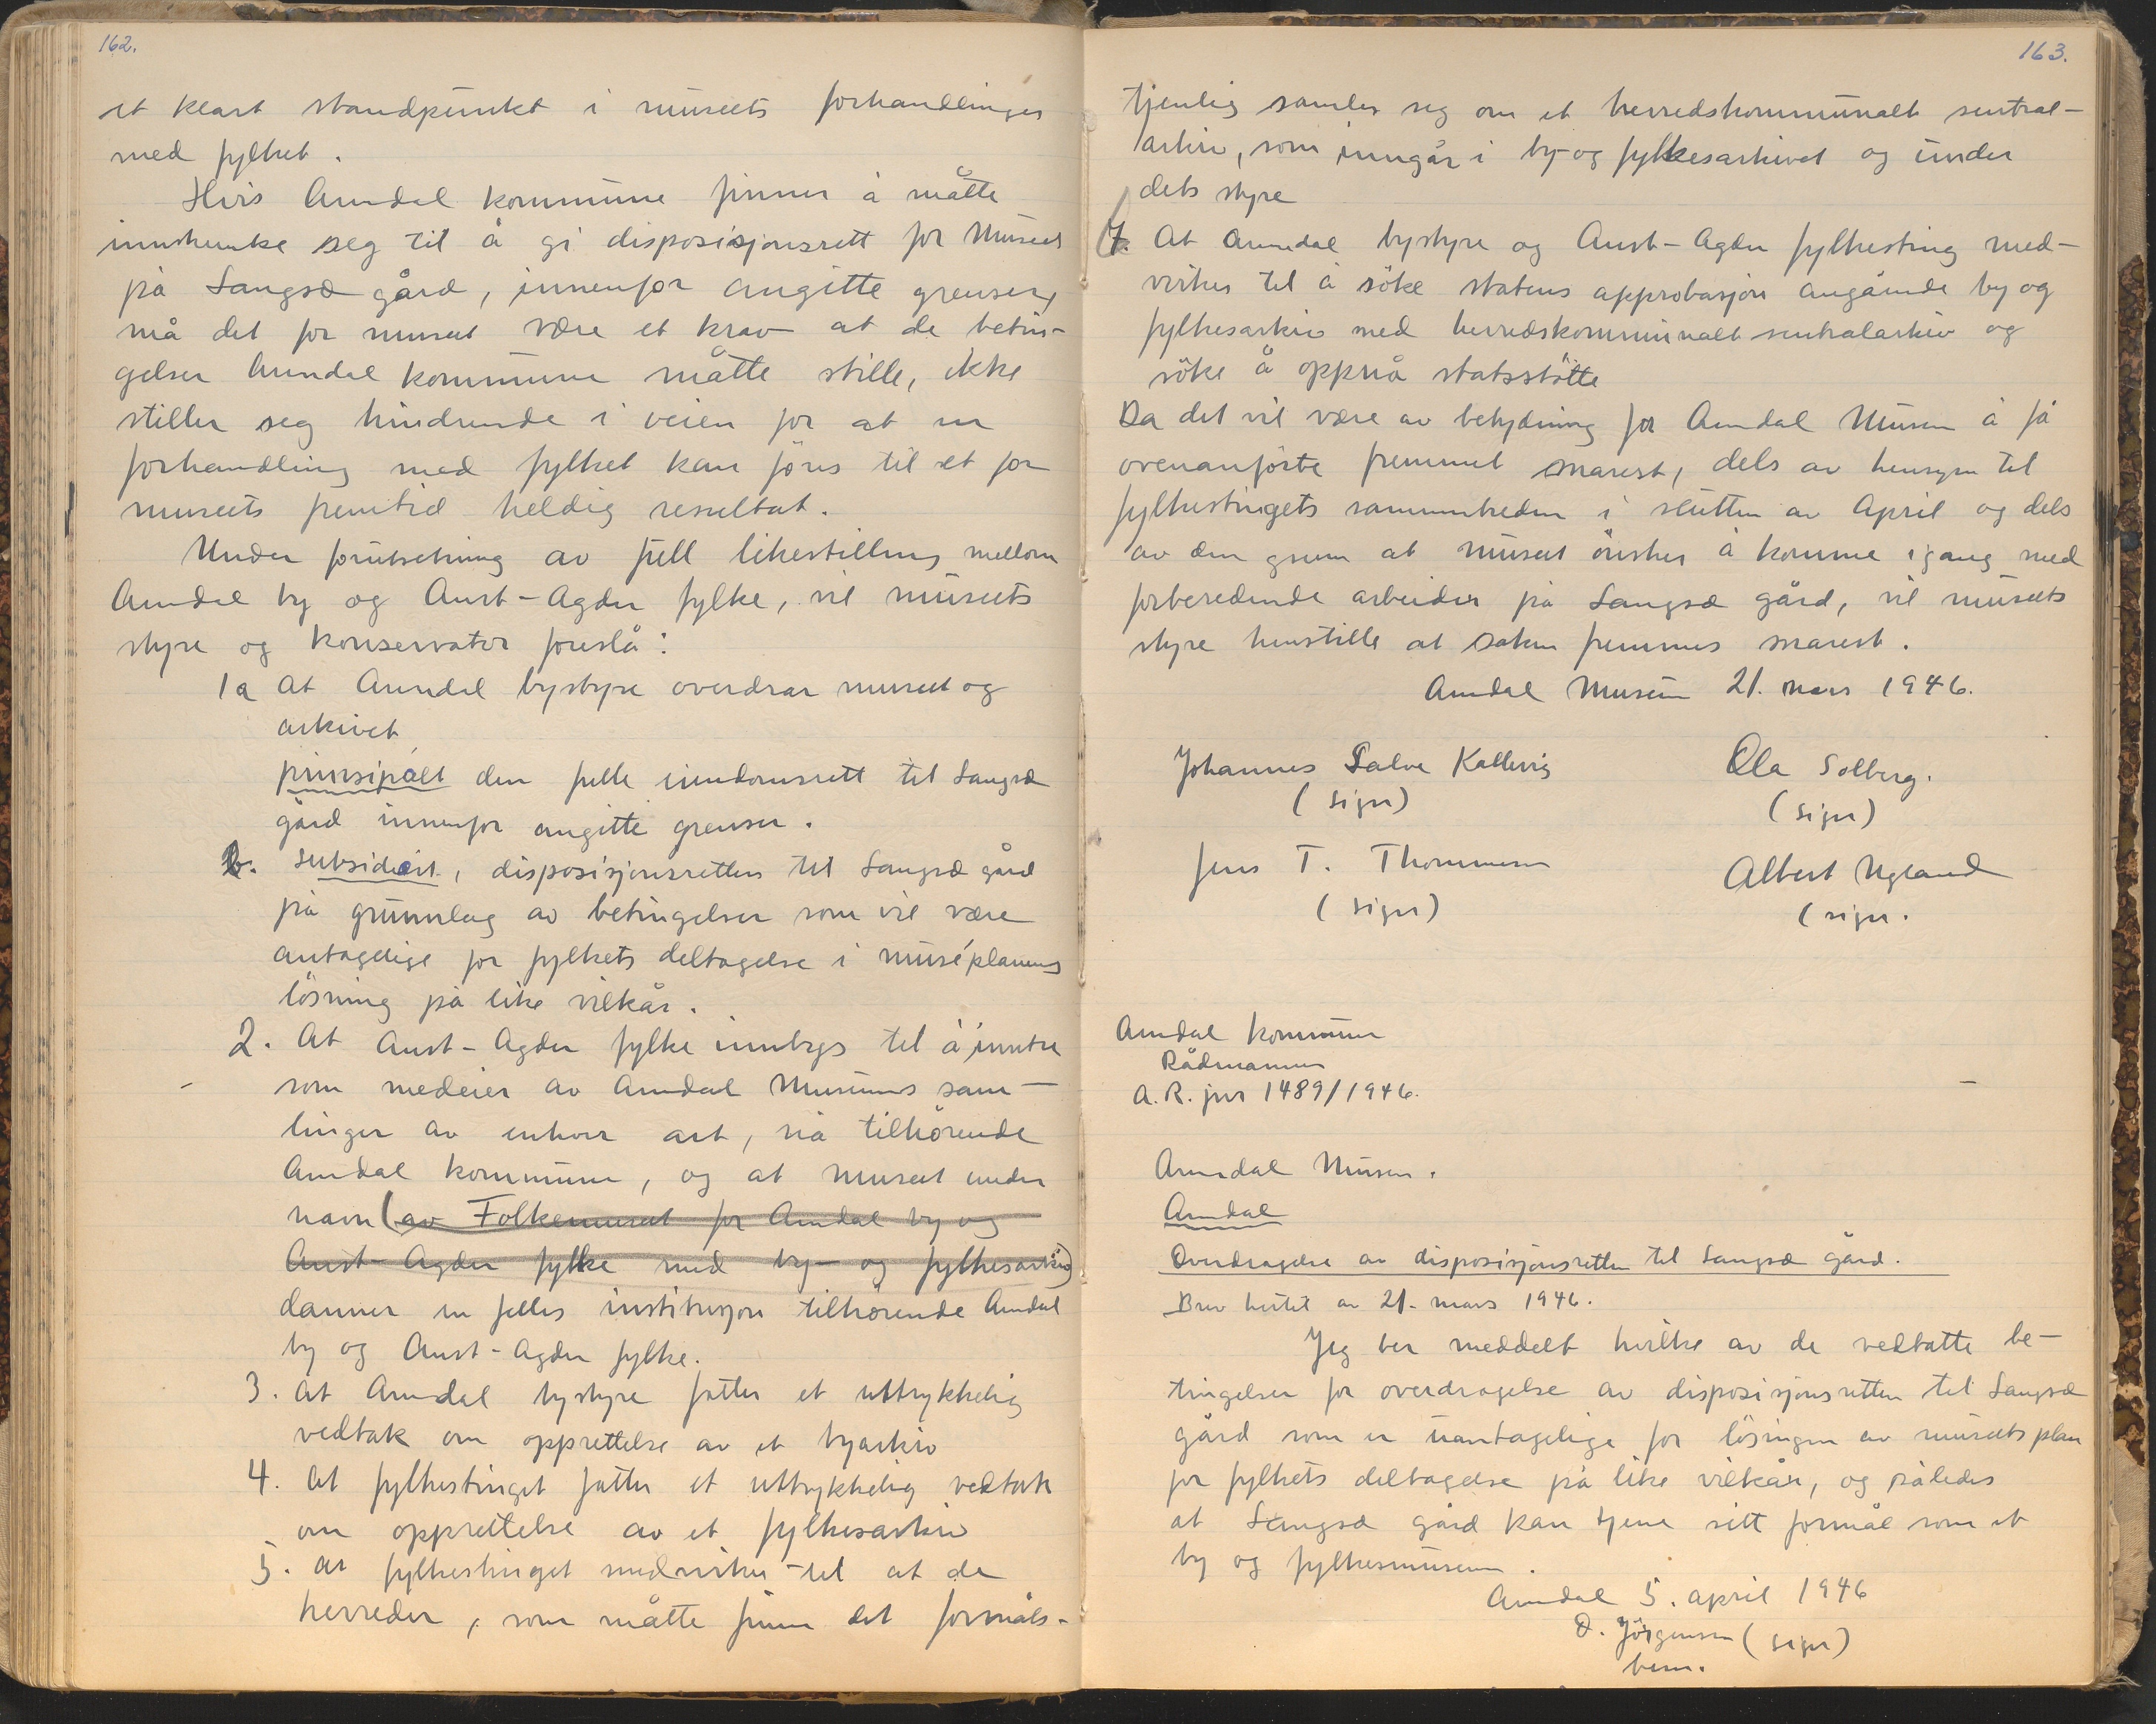 162.
et klart standpunkt i museets forhandlinger
med fylket.
Hvis Arendal kommune finner å måtte
innskrenke seg til å gi disposisjonsrett for Museet
på Langsæ gård, innenfor angitte grenser,
må det for museet være et krav at de betin-
gelser Arendal kommune måtte stille, ikke
stiller seg hindrende i veien for at en
forhandling med fylket kan føres til et for
museets fremtid heldig resultat.
Under forutsetning av full likestilling mellom
Arendal by og Aust-Agder fylke, vil museets
styre og konservator foreslå:
1a At Arendal bystyre overdrar museet og
arkivet
prinsipalt den fulle eiendomsrett til Langsæ
gård innenfor angitte grenser.
b. subsidiært, disposisjonsretten til Langsæ gård
på grunnlag av betingelser som vil være
antagelige for fylkets deltagelse i muséplanens
løsning på like vilkår.
2. At Aust-Agder fylke innbys til å inntre
som medeier av Arendal Museums sam-
linger av enhver art, nå tilhørende
Arendal kommune, og at museet under
navn (av Folkemuseet for Arendal by og
Aust-Agder fylke med by- og fylkesarkiv)
danner en felles institusjon tilhørende Arendal
by og Aust-Agder fylke.
3. At Arendal bystyre fatter et uttrykkelig
vedtak om opprettelse av et byarkiv
4. At fylkestinget fatter et uttrykkelig vedtak
om opprettelse av et fylkesarkiv
5. At fylkestinget medvirker til at de
herreder, som måtte finne det formåls-
163.
tjenlig samler seg om et herredskommunalt sentral-
arkiv, som inngår i by- og fylkesarkivet og under
dets styre
7. At Arendal bystyre og Aust-Agder fylkesting med-
virker til å søke statens approbasjon angående by og
fylkesarkiv med herredskommunalt sentralarkiv og
søke å oppnå statsstøtte
Da det vil være av betydning for Arendal Museum å få
ovenanførte fremmet snarest, dels av hensyn til
fylkestingets sammentreden i slutten av April og dels
av den grunn at museet ønsker å komme igang med
forberedende arbeider på Langsæ gård, vil museets
styre henstille at saken fremmes snarest.
Arendal Museum 21. mars 1946.
Johannes Salve Kallevig
Ola Solberg.
(sign)
(sign)
Jens T. Thommesen
Albert Ugland
(sign)
(sign.
Arendal kommune
Rådmannen
A. R. jnr 1489/1946.
Arendal Museum.
Arendal
Overdragelse av disposisjonsretten til Langsæ gård.
Brev hertil av 21. mars 1946.
Jeg ber meddelt hvilke av de vedtatte be-
tingelser for overdragelse av disposisjonsretten til Langsæ
gård som er uantagelige for løsningen av museets plan
for fylkets deltagelse på like vilkår, og således
at Langsæ gård kan tjene sitt formål som et
by og fylkesmuseum.
Arendal 5. april 1946
O. Jörgensen (sign)